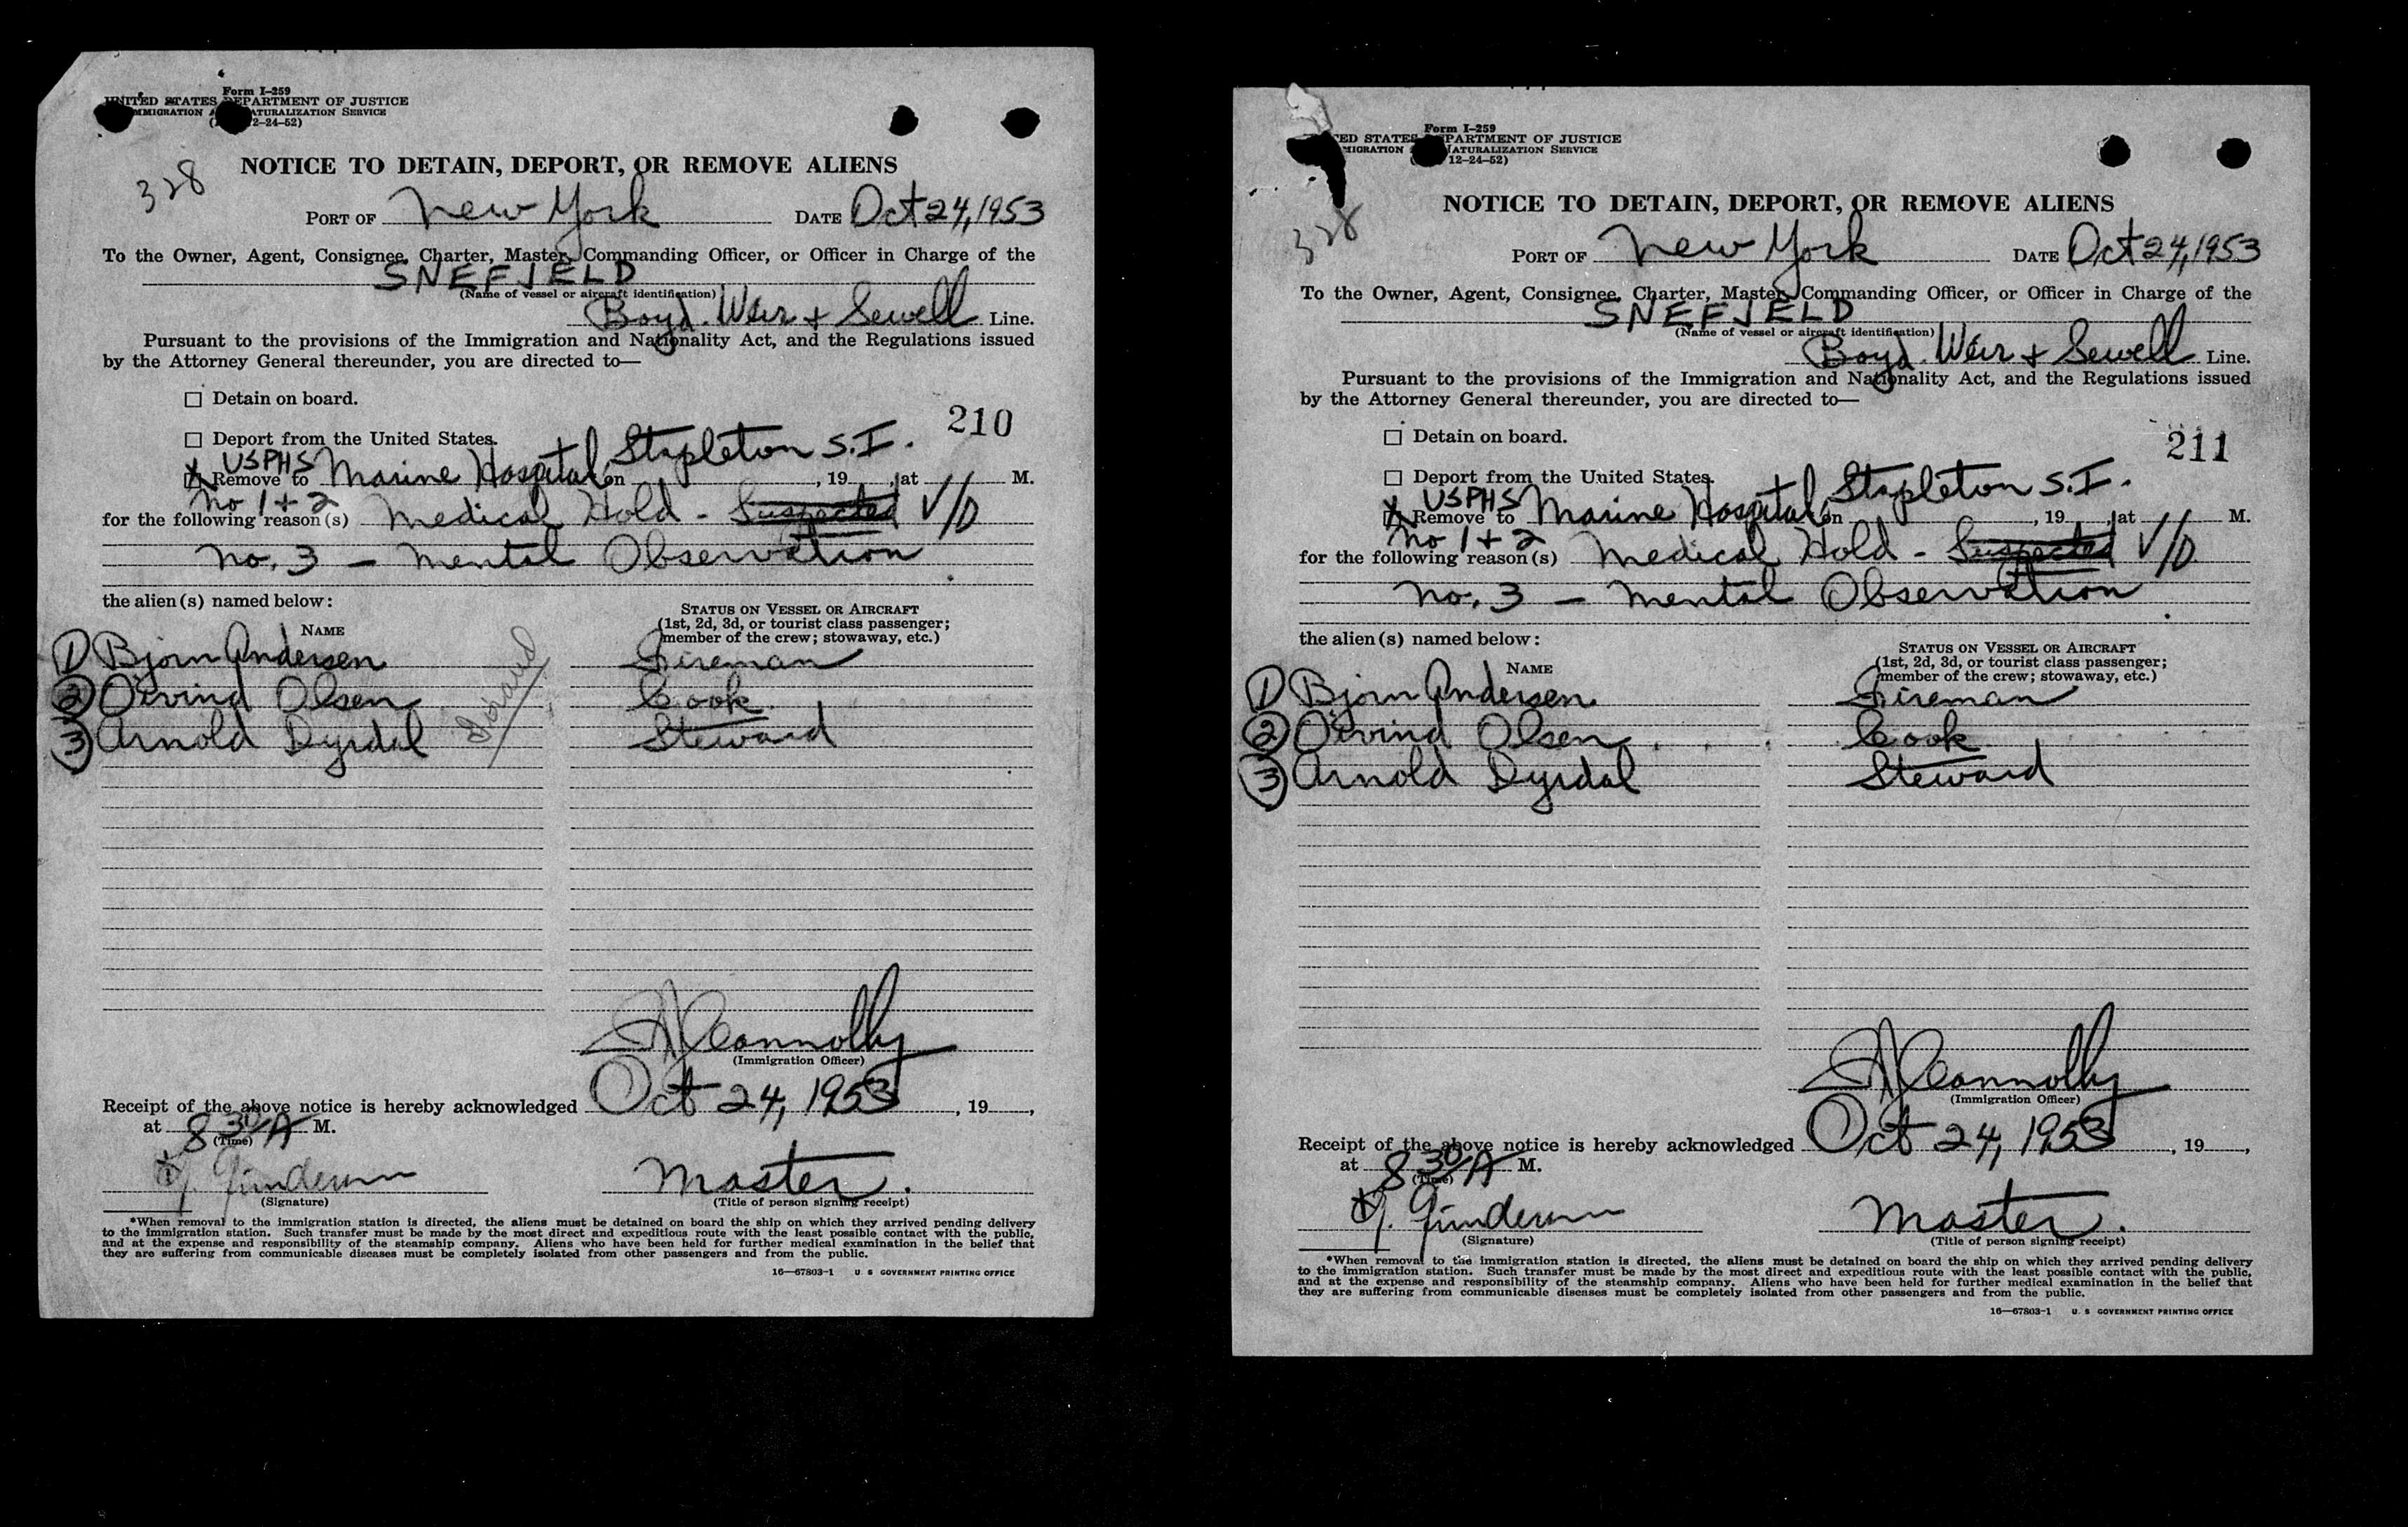 Form I-259
UNITED STATES DEPARTMENT OF JUSTICE
IMMIGRATION NATURALIZATION SERVICE
2-24-52)
NOTICE TO DETAIN, DEPORT, OR REMOVE ALIENS
328
PORT OF New York DATE Oct 24, 1953
To the Owner, Agent, Consignee, Charter, Master, Commanding Officer, or Officer in Charge of the
SNEFJELD
(Name of vessel or aircraft identification)
Boyd. Weir + Sewell Line.
Pursuant to the provisions of the Immigration and Nationality Act, and the Regulations issued
by the Attorney General thereunder, you are directed to—
☐ Detain on board.
210
☐ Deport from the United States.
USPHS
X Remove to Marine Hospital, Stapleton S.I. on , 19 , at M.
No 1 + 2
for the following reason(s) Medical Hold - Suspected V/D
No. 3 - Mental Observation
the alien(s) named below:
NAME
STATUS ON VESSEL OR AIRCRAFT
(1st, 2d, 3d, or tourist class passenger;
member of the crew; stowaway, etc.)
1 Bjorn Andersen Fireman
2 Oivind Olsen Cook
3 Arnold Dyrdal Steward
Connolly
(Immigration Officer)
Receipt of the above notice is hereby acknowledged Oct 24, 1953, 19 ,
at 8 30/A M.
(Time)
Gundersen Master.
(Signature) (Title of person signing receipt)
*When removal to the immigration station is directed, the aliens must be detained on board the ship on which they arrived pending delivery
to the immigration station. Such transfer must be made by the most direct and expeditious route with the least possible contact with the public,
and at the expense and responsibility of the steamship company. Aliens who have been held for further medical examination in the belief that
they are suffering from communicable diseases must be completely isolated from other passengers and from the public.
16—67803-1 U. S GOVERNMENT PRINTING OFFICE
Form I-259
STATES DEPARTMENT OF JUSTICE
NATURALIZATION SERVICE
12-24-52)
NOTICE TO DETAIN, DEPORT, OR REMOVE ALIENS
328
PORT OF New York DATE Oct 24, 1953
To the Owner, Agent, Consignee, Charter, Master, Commanding Officer, or Officer in Charge of the
SNEFJELD
(Name of vessel or aircraft identification)
Boyd. Weir + Sewell Line.
Pursuant to the provisions of the Immigration and Nationality Act, and the Regulations issued
by the Attorney General thereunder, you are directed to—
☐ Detain on board.
211
☐ Deport from the United States.
USPHS
X Remove to Marine Hospital, Stapleton S.I. on , 19 , at M.
No 1 + 2
for the following reason(s) Medical Hold - Suspected V/D
No. 3 - Mental Observation
the alien(s) named below:
NAME
STATUS ON VESSEL OR AIRCRAFT
(1st, 2d, 3d, or tourist class passenger;
member of the crew; stowaway, etc.)
1 Bjorn Andersen Fireman
2 Oivind Olsen Cook
3 Arnold Dyrdal Steward
Connolly
(Immigration Officer)
Receipt of the above notice is hereby acknowledged Oct 24, 1953, 19 ,
at 8 30/A M.
(Time)
Gundersen Master.
(Signature) (Title of person signing receipt)
*When removal to the immigration station is directed, the aliens must be detained on board the ship on which they arrived pending delivery
to the immigration station. Such transfer must be made by the most direct and expeditious route with the least possible contact with the public,
and at the expense and responsibility of the steamship company. Aliens who have been held for further medical examination in the belief that
they are suffering from communicable diseases must be completely isolated from other passengers and from the public.
16—67803-1 U. S GOVERNMENT PRINTING OFFICE